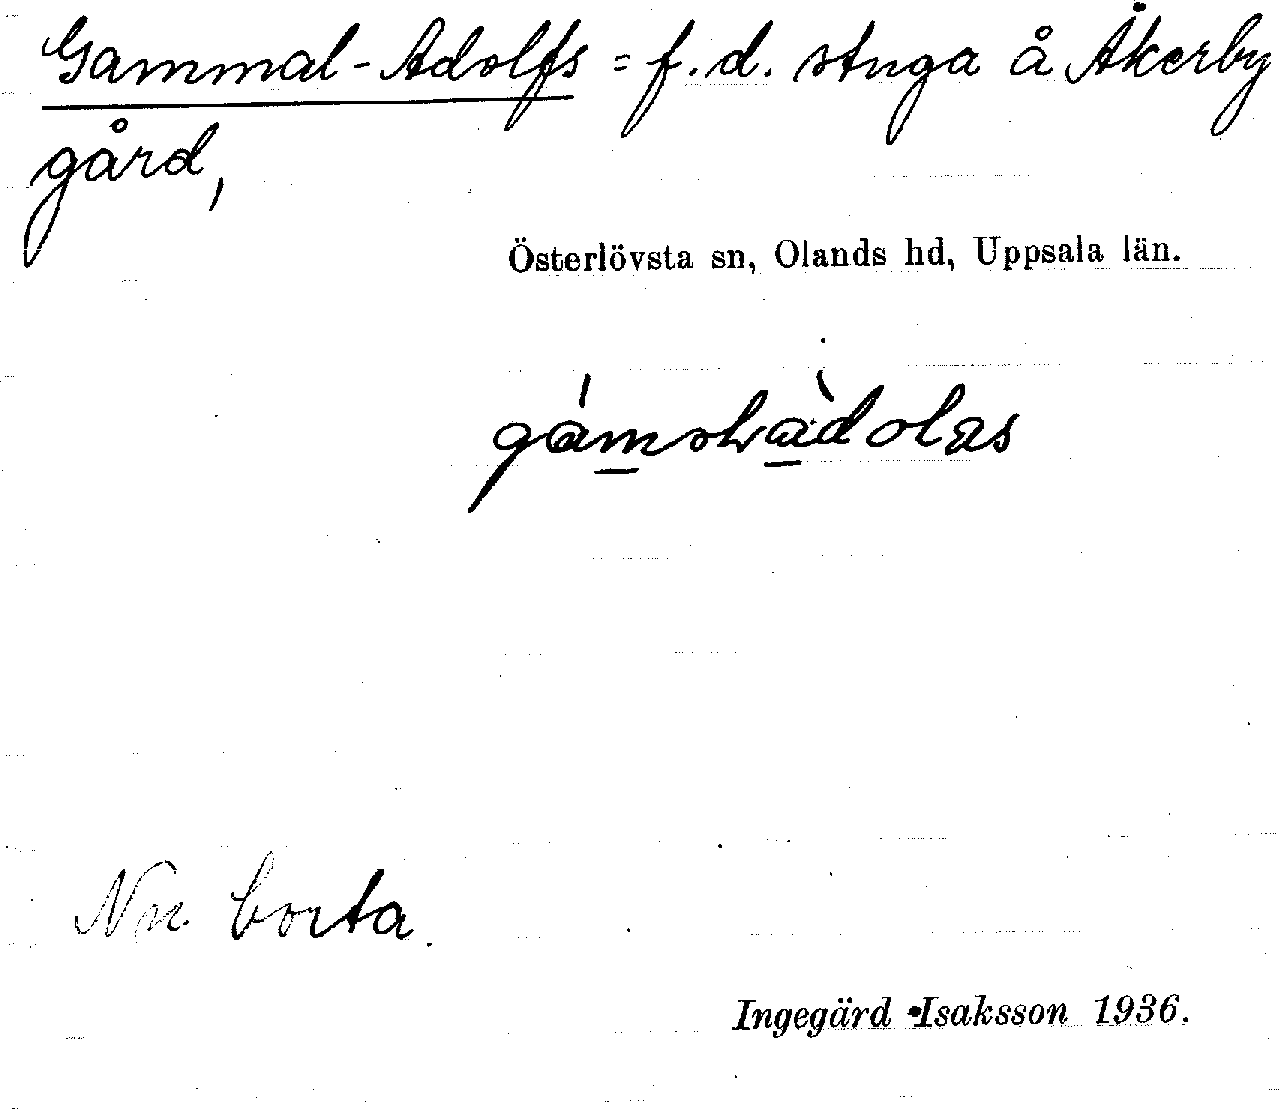 Gammal-Adolfs = f.d. stuga å Åkerby
gård,
Österlövsta sn, Olands hd, Uppsala län.
Nu borta.
Ingegärd Isaksson 1936.